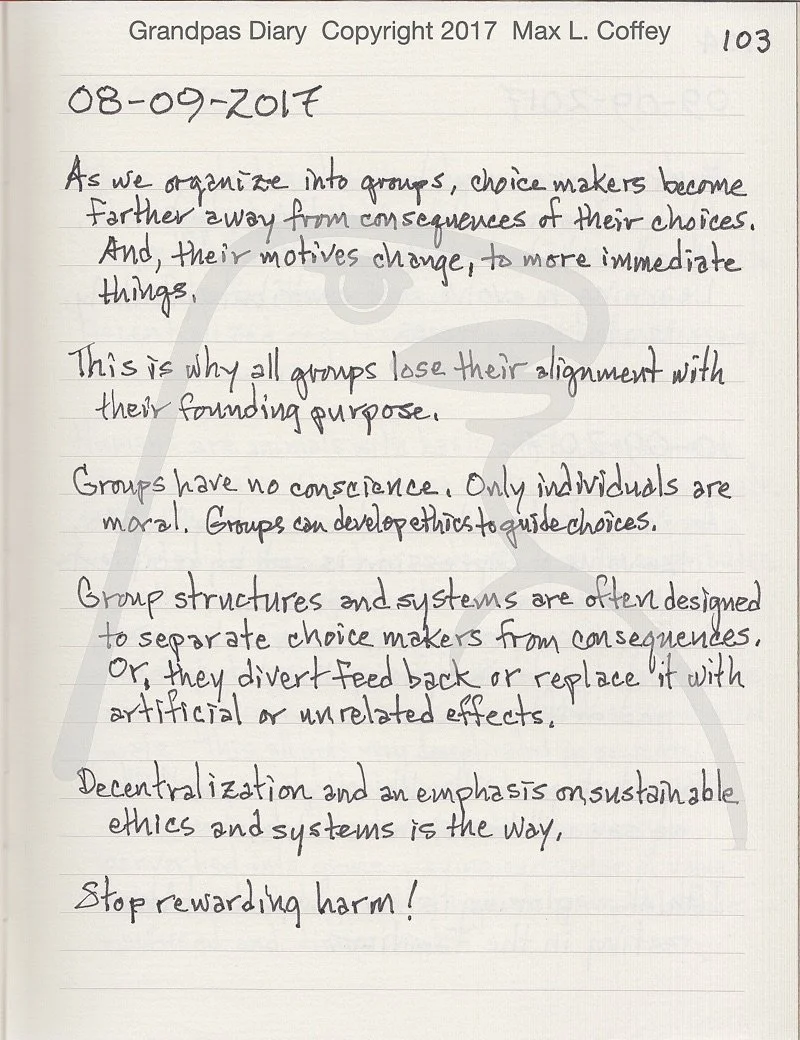 Grandpas Diary Copyright 2017 Max L. Coffey
103
08-09-2017
As we organize into groups, choice makers become
farther away from consequences of their choices.
And, their motives change, to more immediate
things.
This is why all groups lose their alignment with
their founding purpose.
Groups have no conscience. Only individuals are
moral. Groups can develop ethics to guide choices.
Group structures and systems are often designed
to separate choice makers from consequences.
Or, they divert feed back or replace it with
artificial or unrelated effects.
Decentralization and an emphasis on sustainable
ethics and systems is the way.
Stop rewarding harm!